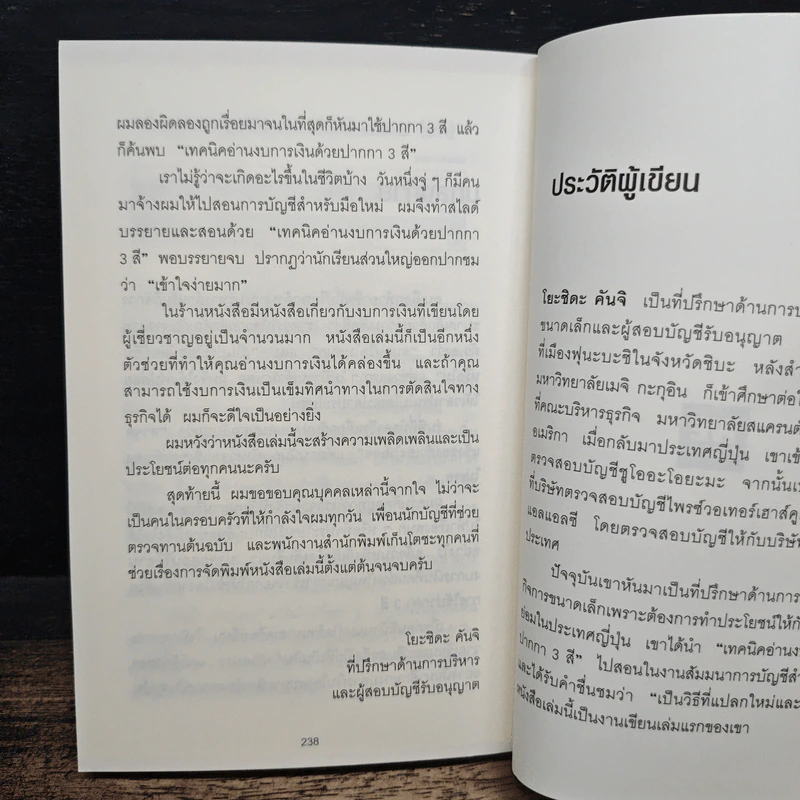 ผมลองผิดลองถูกเรื่อยมาจนในที่สุดก็หันมาใช้ปากกา 3 สี แล้ว
ก็ค้นพบ “เทคนิคอ่านงบการเงินด้วยปากกา 3 สี”
เราไม่รู้ว่าจะเกิดอะไรขึ้นในชีวิตบ้าง วันหนึ่งจู่ ๆ ก็มีคน
มาจ้างผมให้ไปสอนการบัญชีสำหรับมือใหม่ ผมจึงทำสไลด์
บรรยายและสอนด้วย “เทคนิคอ่านงบการเงินด้วยปากกา
3 สี” พอบรรยายจบ ปรากฏว่านักเรียนส่วนใหญ่ออกปากชม
ว่า “เข้าใจง่ายมาก”
ในร้านหนังสือมีหนังสือเกี่ยวกับงบการเงินที่เขียนโดย
ผู้เชี่ยวชาญอยู่เป็นจำนวนมาก หนังสือเล่มนี้ก็เป็นอีกหนึ่ง
ตัวช่วยที่ทำให้คุณอ่านงบการเงินได้คล่องขึ้น และถ้าคุณ
สามารถใช้งบการเงินเป็นเข็มทิศนำทางในการตัดสินใจทาง
ธุรกิจได้ ผมก็จะดีใจเป็นอย่างยิ่ง
ผมหวังว่าหนังสือเล่มนี้จะสร้างความเพลิดเพลินและเป็น
ประโยชน์ต่อทุกคนนะครับ
สุดท้ายนี้ ผมขอขอบคุณบุคคลเหล่านี้จากใจ ไม่ว่าจะ
เป็นคนในครอบครัวที่ให้กำลังใจผมทุกวัน เพื่อนนักบัญชีที่ช่วย
ตรวจทานต้นฉบับ และพนักงานสำนักพิมพ์เก็นโตชะทุกคนที่
ช่วยเรื่องการจัดพิมพ์หนังสือเล่มนี้ตั้งแต่ต้นจนจบครับ
โยะชิดะ คันจิ
ที่ปรึกษาด้านการบริหาร
และผู้สอบบัญชีรับอนุญาต
238
ประวัติผู้เขียน
โยะชิดะ คันจิ เป็นที่ปรึกษาด้านการบ
ขนาดเล็กและผู้สอบบัญชีรับอนุญาต
ที่เมืองฟุนะบะชิในจังหวัดชิบะ หลังสำ
มหาวิทยาลัยเมจิ กะกุอิน ก็เข้าศึกษาต่อใ
ที่คณะบริหารธุรกิจ มหาวิทยาลัยสแครนต์
อเมริกา เมื่อกลับมาประเทศญี่ปุ่น เขาเข้
ตรวจสอบบัญชีชูโออะโอยะมะ จากนั้นเ
ที่บริษัทตรวจสอบบัญชีไพรซ์วอเทอร์เฮาส์คู
แอลแอลซี โดยตรวจสอบบัญชีให้กับบริษั
ประเทศ
ปัจจุบันเขาหันมาเป็นที่ปรึกษาด้านการ
กิจการขนาดเล็กเพราะต้องการทำประโยชน์ให้กั
ย่อมในประเทศญี่ปุ่น เขาได้นำ “เทคนิคอ่านง
ปากกา 3 สี” ไปสอนในงานสัมมนาการบัญชีสำ
และได้รับคำชื่นชมว่า “เป็นวิธีที่แปลกใหม่และ
หนังสือเล่มนี้เป็นงานเขียนเล่มแรกของเขา